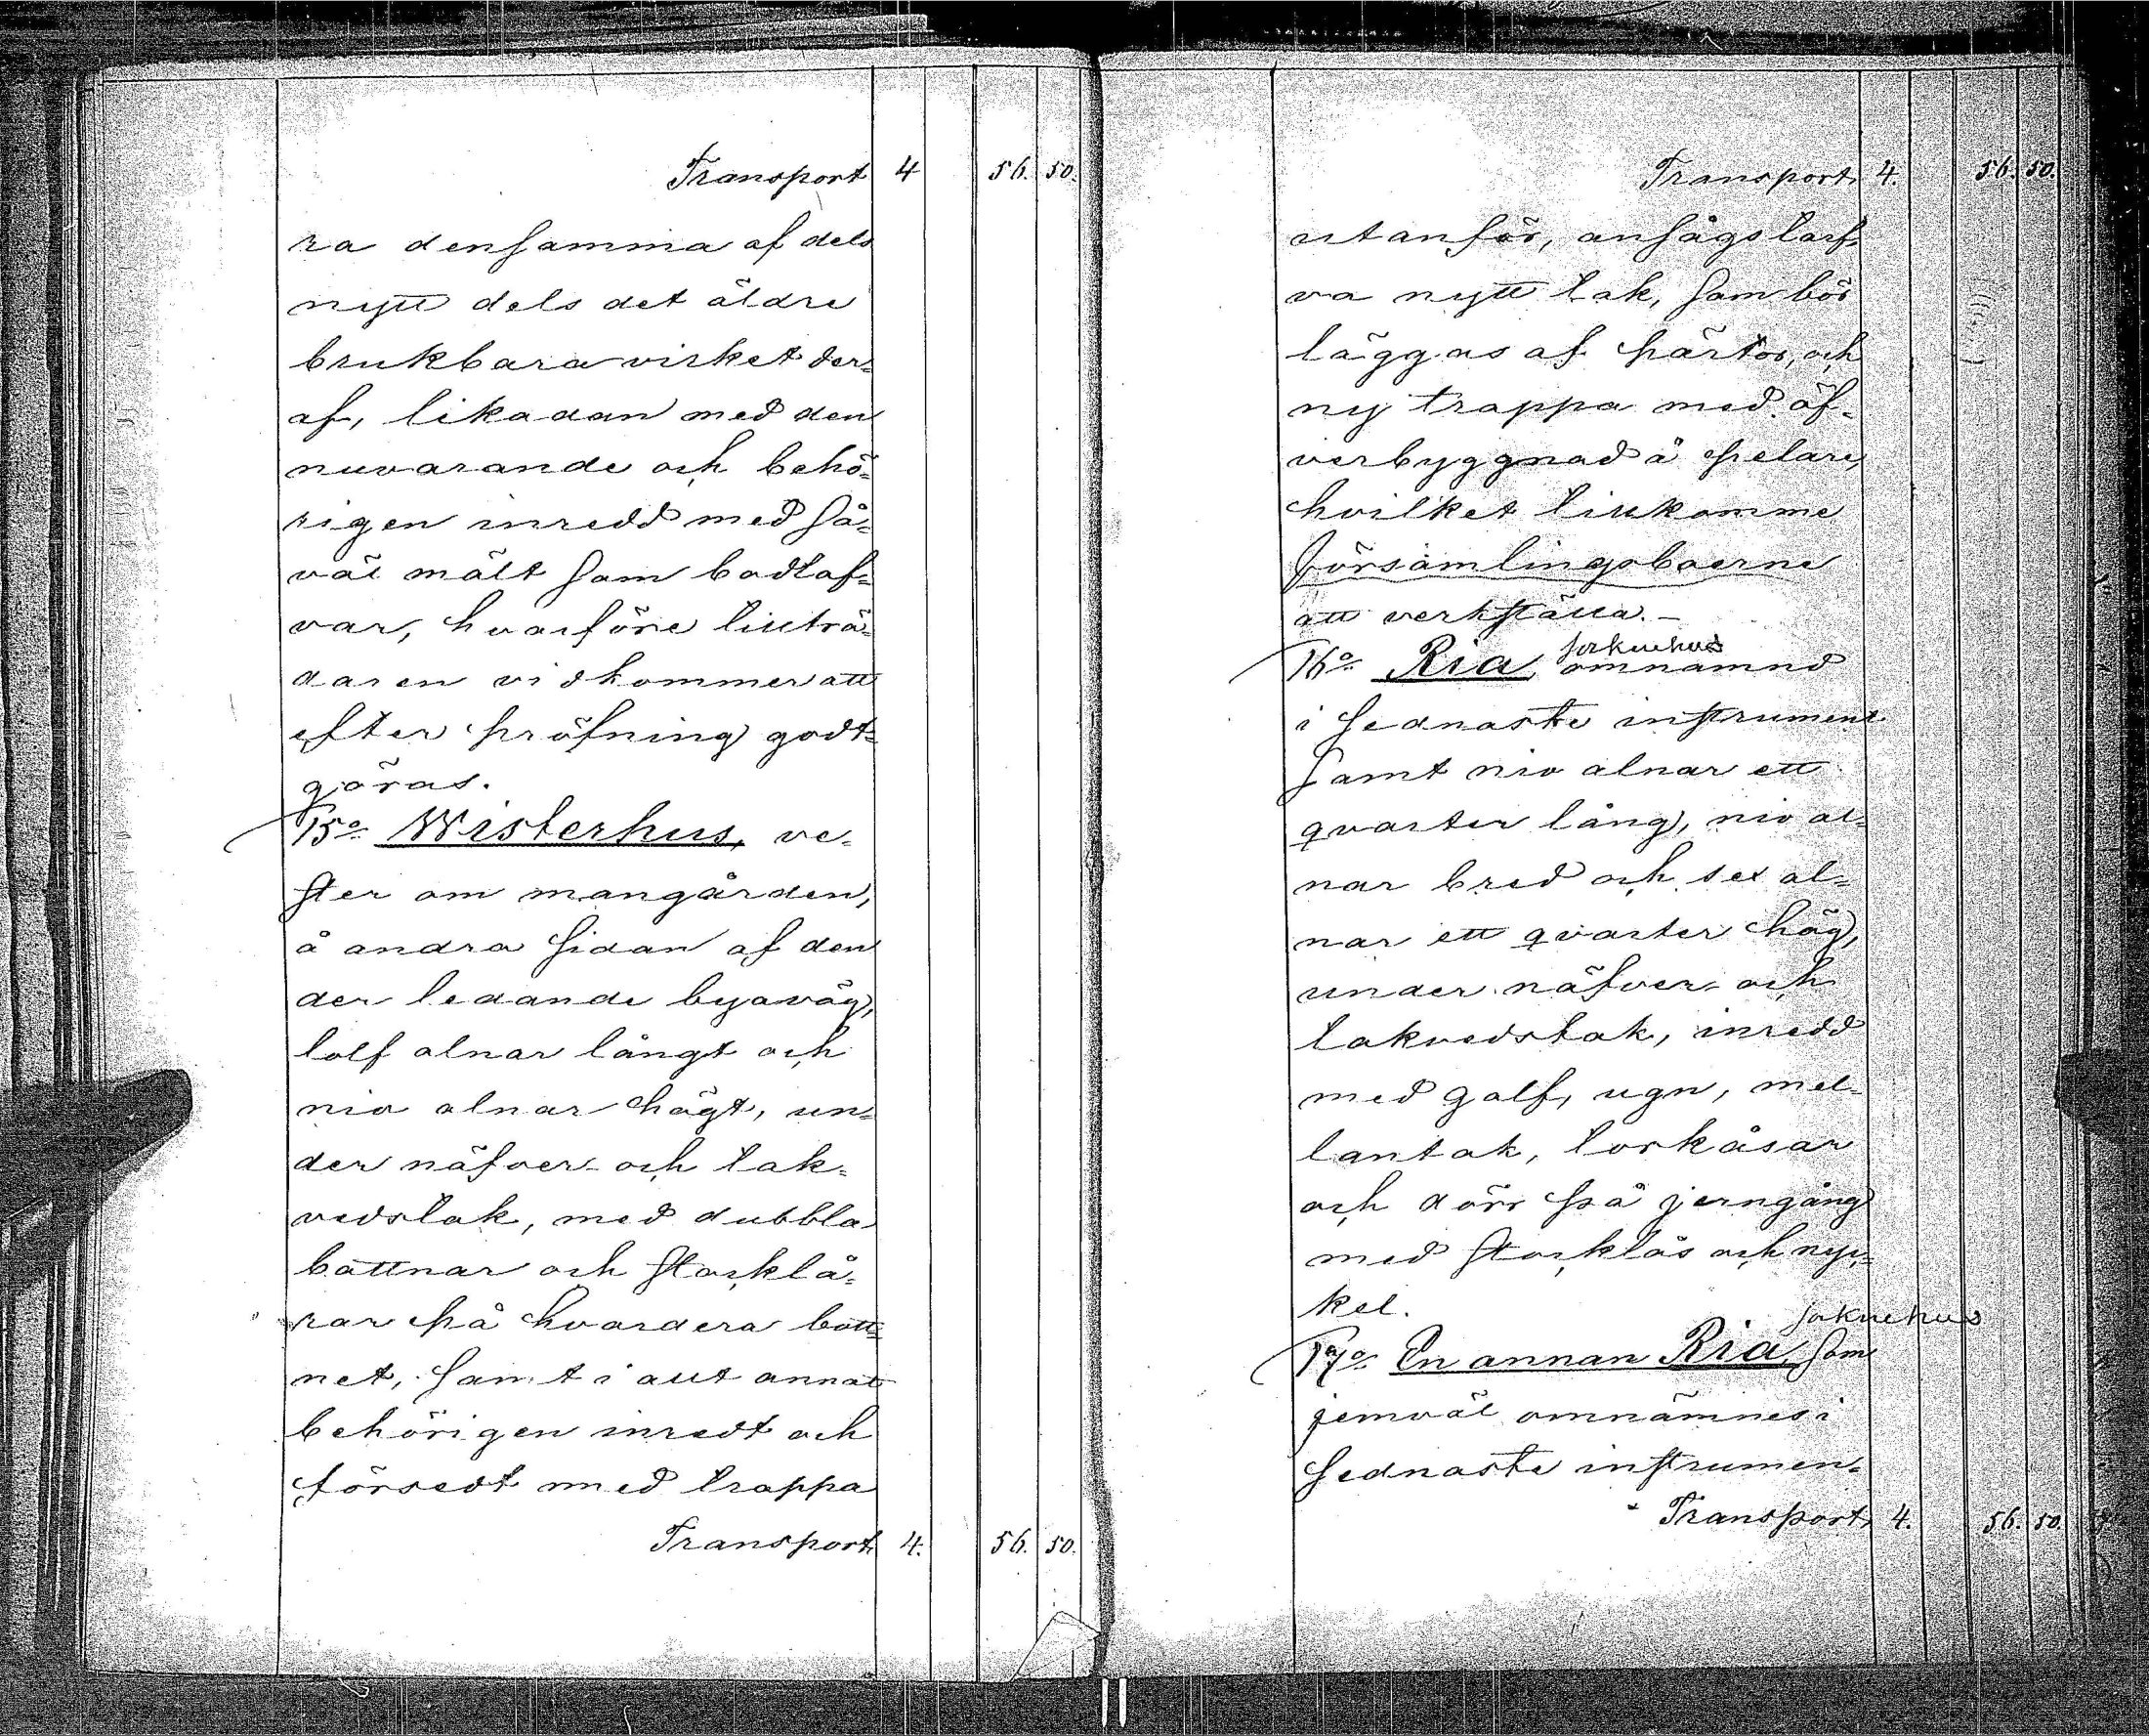 Transport 4 56. 50.
ra densamma af dels
nytt dels det äldre
brukbara virket der-
af, likadan med den
nuvarande och behö-
rigen inredd med så-
väl mält som badlaf-
var, hvarföre tillträ-
daren vidkommer att
efter pröfning godt-
göras.
15o Wisterhus, ve-
ster om mangården,
å andra sidan af den
der ledande byaväg,
tolf alnar långt och
nio alnar högt, un-
der näfver- och tak-
vedstak, med dubbla
bottnar och stocklå-
rar på hvardera bott-
net, samt i allt annat
behörigen inredt och
försedt med trappa
Transport 4. 56. 50.
Transport 4. 56. 50.
utanför, ansågs tarf-
va nytt tak, som bör
läggas af pärtor, och
ny trappa med öf-
verbyggnad å pelare,
hvilket tillkomme
församlingsboerne
att verkställa. -
16o Ria, omnämnd
i sednaste instrument
samt nio alnar ett
qvarter lång, nio al-
nar bred och sex al-
nar ett qvarter hög,
under näfver- och
takvedstak, inredd
med golf, ugn, mel-
lantak, torkåsar
och dörr på jerngång
med stocklås och nyc-
kel.
17o En annan Ria, som
jemväl omnämnes i
sednaste instrumen-
Transport 4. 56. 50.